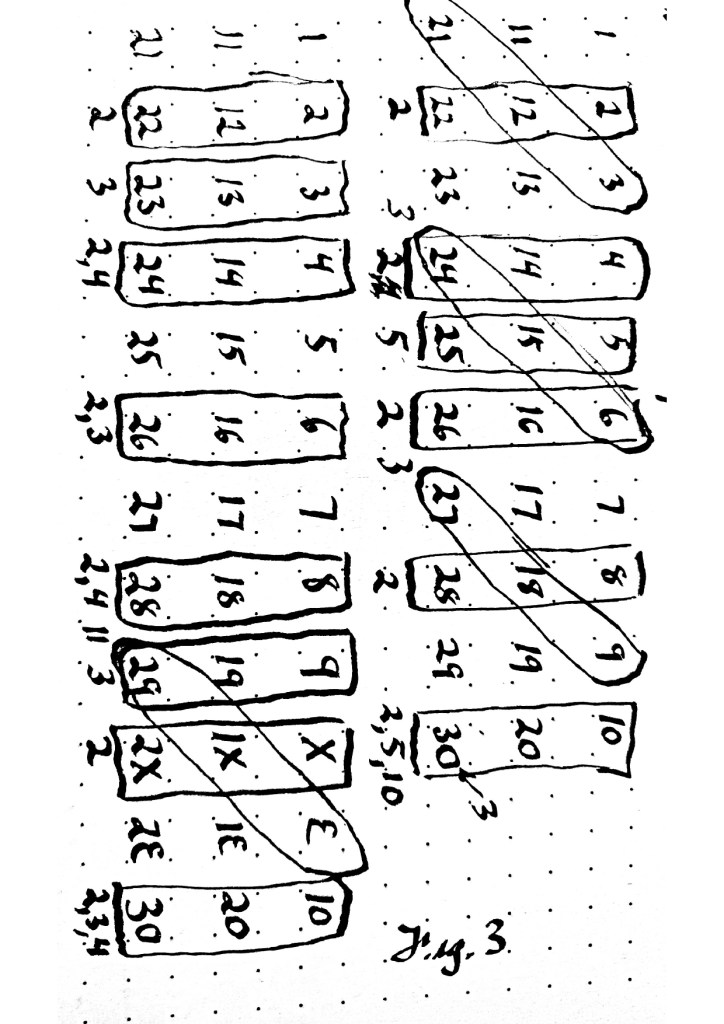 1 2 3 4 5 6 7 8 9 10
11 12 13 14 15 16 17 18 19 20
21 22 23 24 25 26 27 28 29 30 3
2 3 2,4 5 2 3 2 2,5,10
Fig. 3
1 2 3 4 5 6 7 8 9 X E 10
11 12 13 14 15 16 17 18 19 1X 1E 20
21 22 23 24 25 26 27 28 29 2X 2E 30
2 3 2,4 2,3 2,4 11 3 2 2,3,4